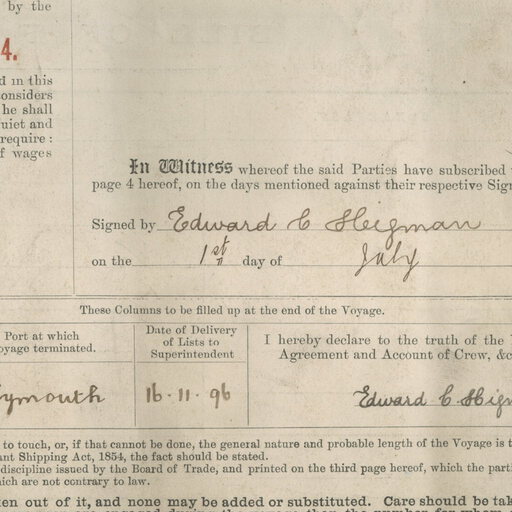 by the
4.
d in this
onsiders
he shall
uiet and
require :
f wages
In Witness whereof the said Parties have subscribed
page 4 hereof, on the days mentioned against their respective Sig
Signed by Edward C Heigman
on the 1st day of July
These Columns to be filled up at the end of the Voyage.
Port at which
oyage terminated.
Date of Delivery
of Lists to
Superintendent
I hereby declare to the truth of the
Agreement and Account of Crew, &c
ymouth
16.11.96
Edward C Heig
to touch, or, if that cannot be done, the general nature and probable length of the Voyage is t
ant Shipping Act, 1854, the fact should be stated.
discipline issued by the Board of Trade, and printed on the third page hereof, which the parti
hich are not contrary to law.
ken out of it, and none may be added or substituted. Care should be ta